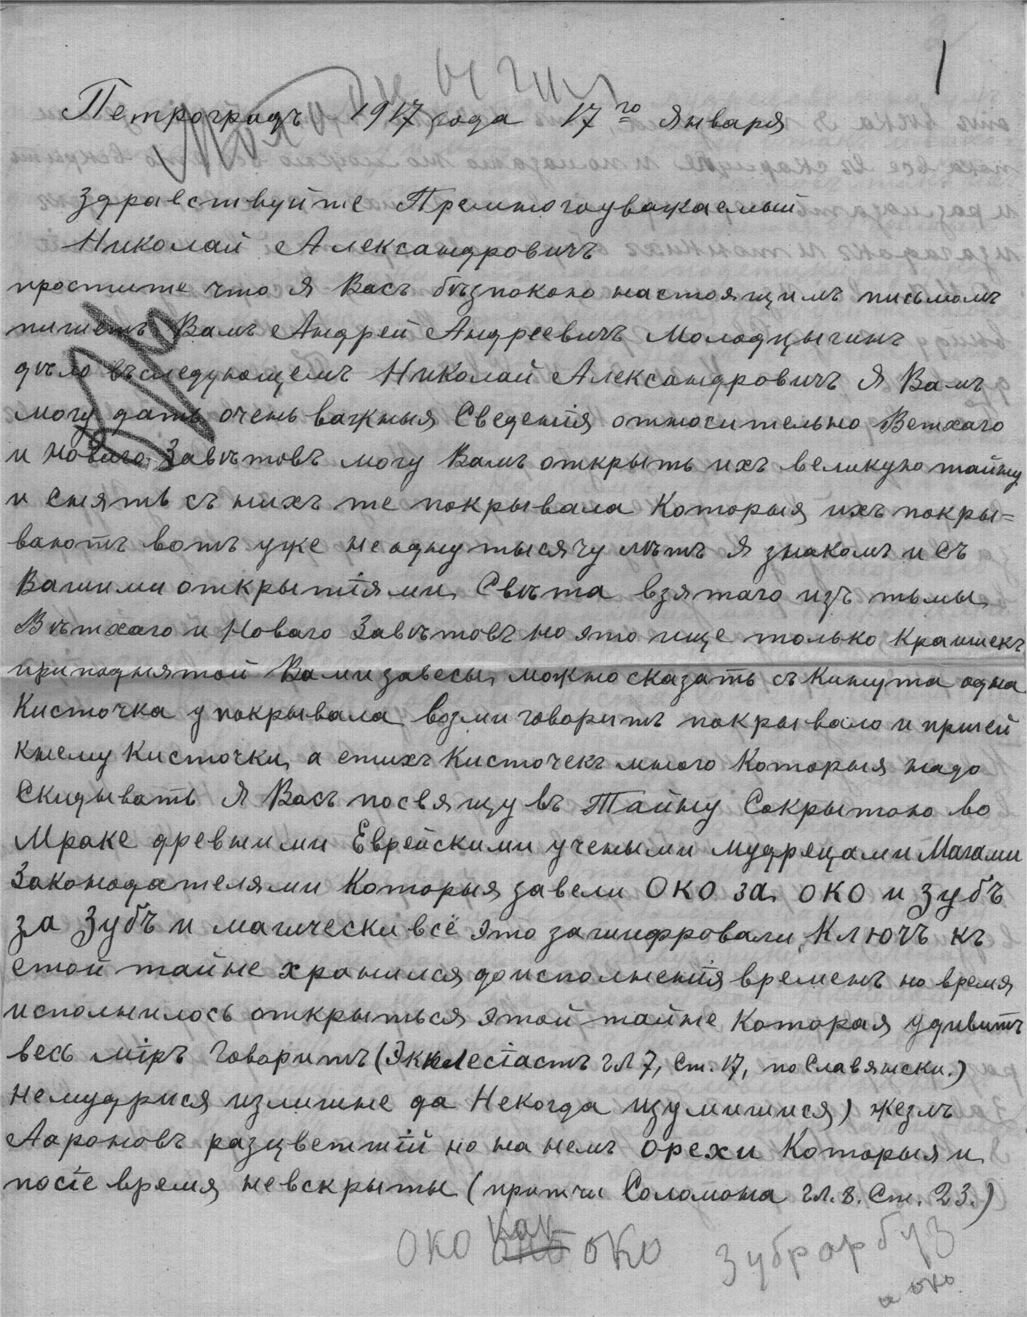 1
Молодцыгин
Петроградъ 1917 года 17го Января
Здравствуйте Премногоуважаемый
Николай Александровичъ
простите что я Васъ бѣзпокою настоящимъ письмомъ
пишетъ Вамъ Андрей Андреевичъ Молодцыгинъ
дѣло въследующемъ Николай Александровичъ Я Вамъ
могу дать очень важныя Сведенія относительно Ветхаго
и Новаго Завѣтовъ могу Вамъ открыть ихъ великую тайну
и Снять съ нихъ те покрывала Которыя ихъ покры=
ваютъ вотъ уже не одну тысячу лѣтъ Я знакомъ и съ
Вашими открытіями, Свѣта взятаго изъ тьмы,
Вѣтхаго и Новаго Завѣтовъ но это ище только Краишекъ
приподнятой Вами завесы, можно сказать съкинута одна
Кисточка у покрывала возми говоритъ покрывало и пришей
кнему Кисточки, а етихъ Кисточекъ много Которыя надо
Скидывать Я Васъ посвящу въ Тайну Сокрытою во
Мраке древними Еврейскими учеными мудрецами Магами
Законодателями Которыя завели ОКО за ОКО и Зубъ
за Зубъ и магически всё это зашифровали, Ключъ къ
етой тайне хранился доисполненія временъ но время
исполнилось открыться этой тайне Которая удивитъ
весь міръ Говоритъ (Экклесіастъ гл 7, Ст. 17, по Славянски.)
Немудрися излишне да Некогда изумишися) Жезлъ
Аароновъ разцветшій но на немъ орехи Которыя и
посіе время невскрыты (притчи Соломона гл. 8. Ст. 23.)
око как око зуброрбуз
и око